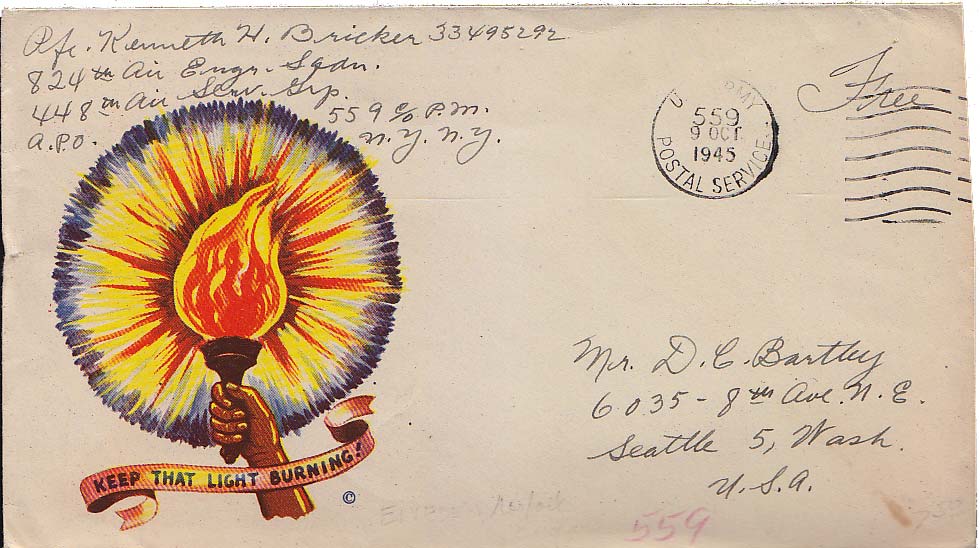 Pfc. Kenneth H. Bricker 33495292
824th Air Engr. Sqdn.
448th Air Serv. Grp.
A.P.O. 559 c/o P.M.
N.Y. N.Y.
Free
ARMY
559
9 OCT
1945
POSTAL SERVICE
Mr. D. C. Bartley
6035 - 8th Ave. N. E.
Seattle 5, Wash.
U.S.A.
KEEP THAT LIGHT BURNING!
©
559